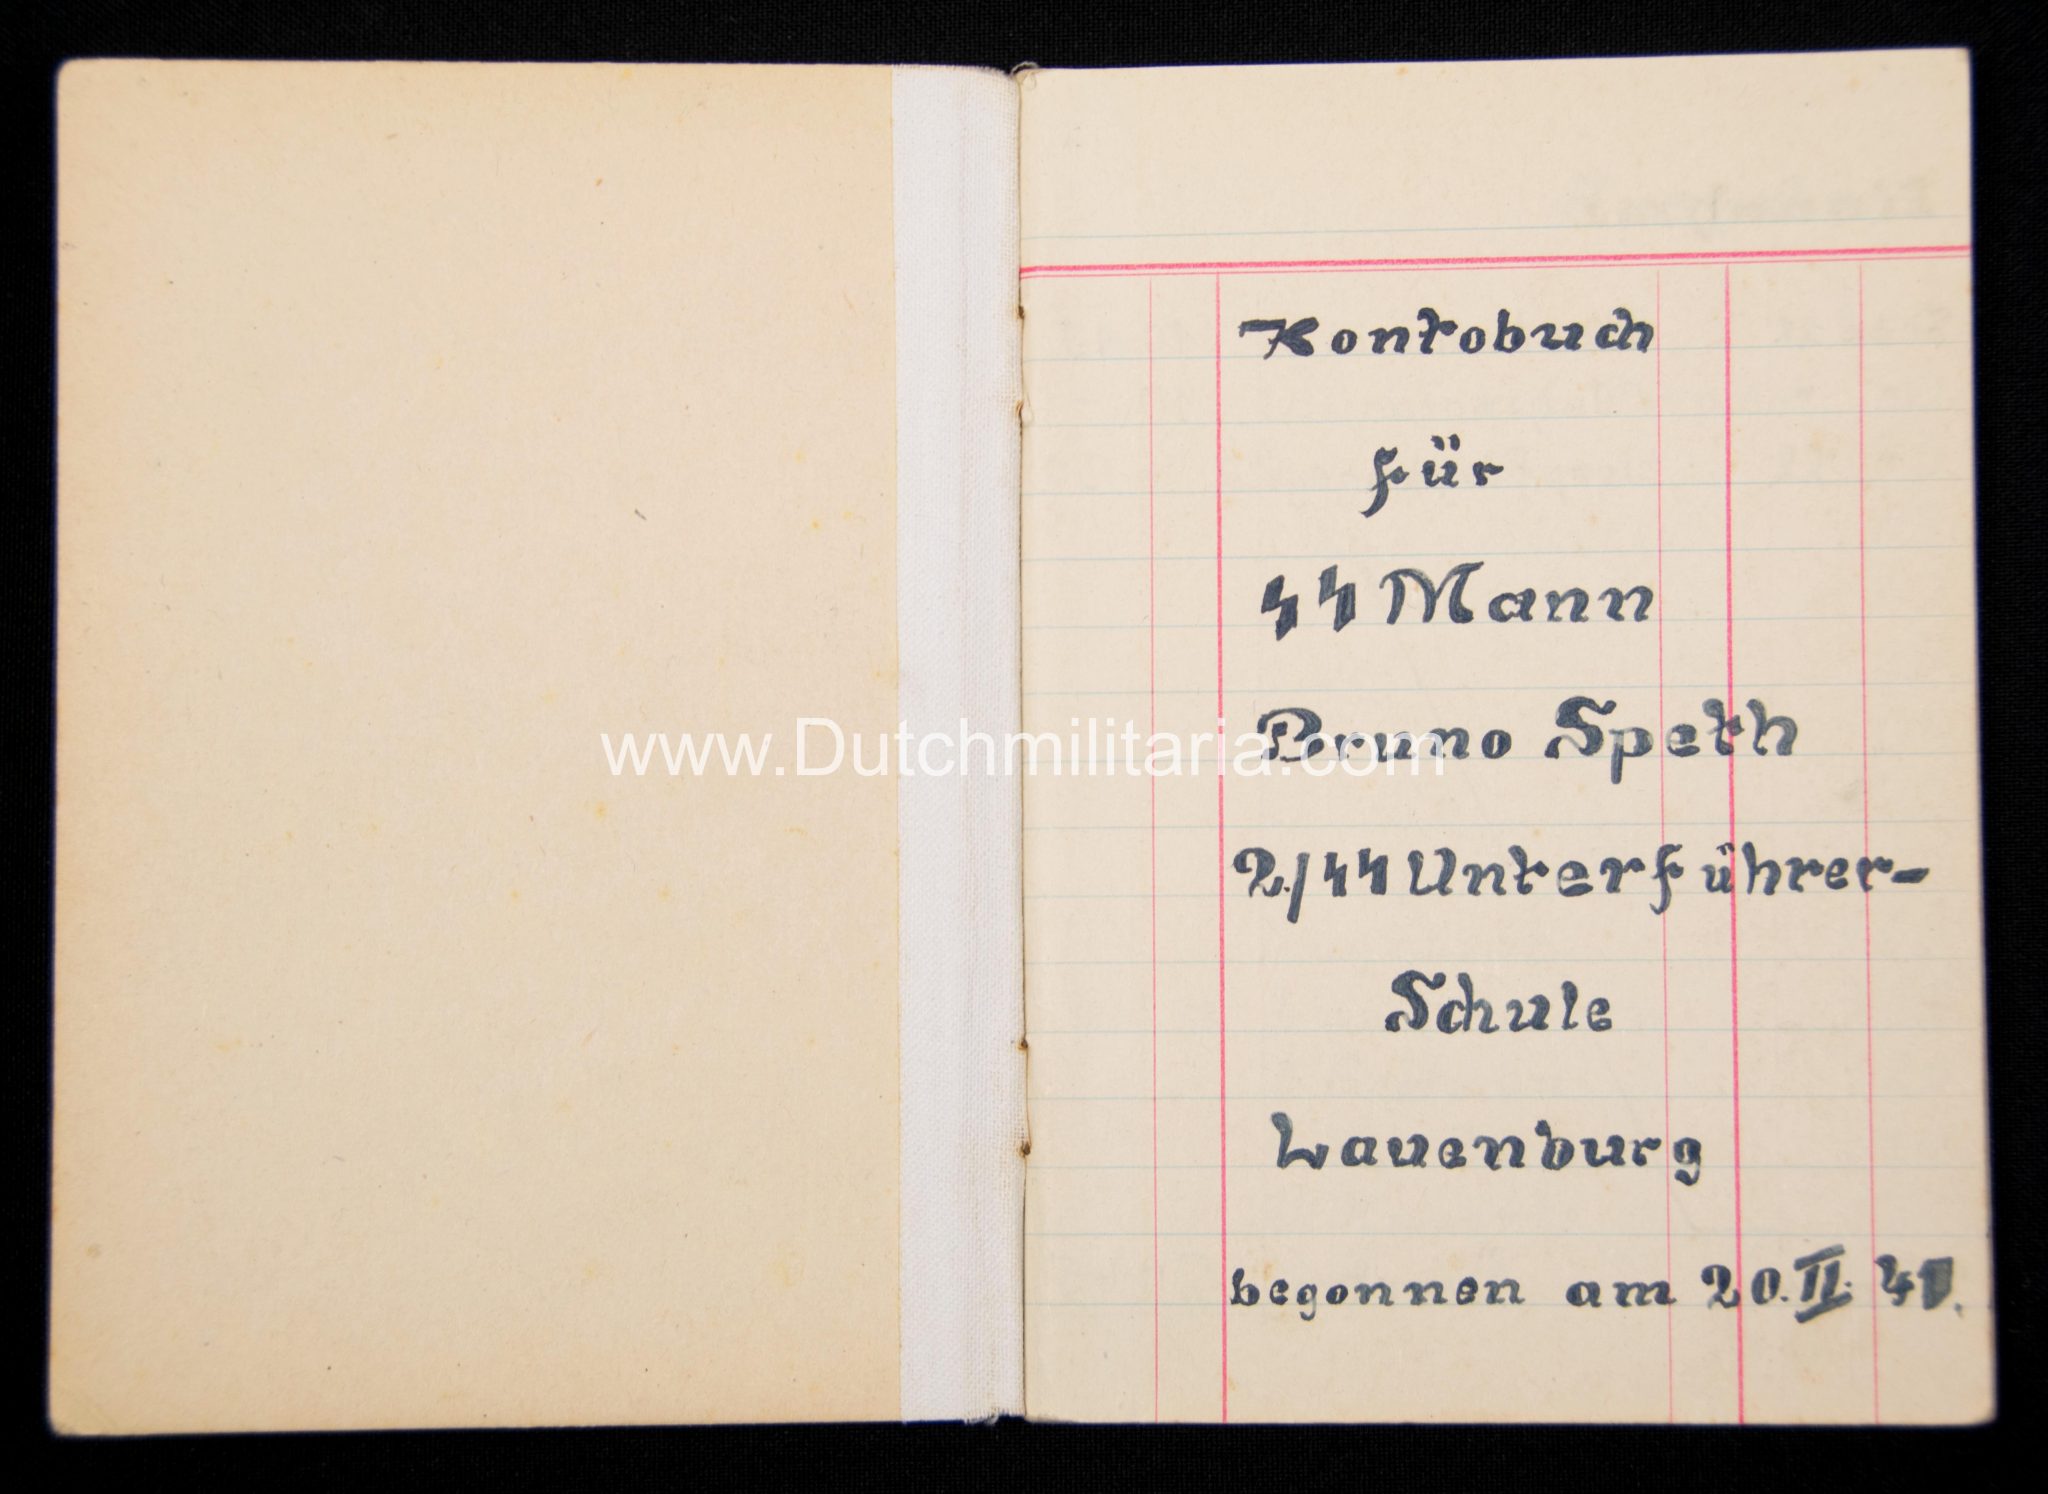 Kontobuch
für
ᛋᛋ Mann
Bruno Speth
2./ᛋᛋ Unterführer-
Schule
Lauenburg
begonnen am 20. II. 41.
www.Dutchmilitaria.com